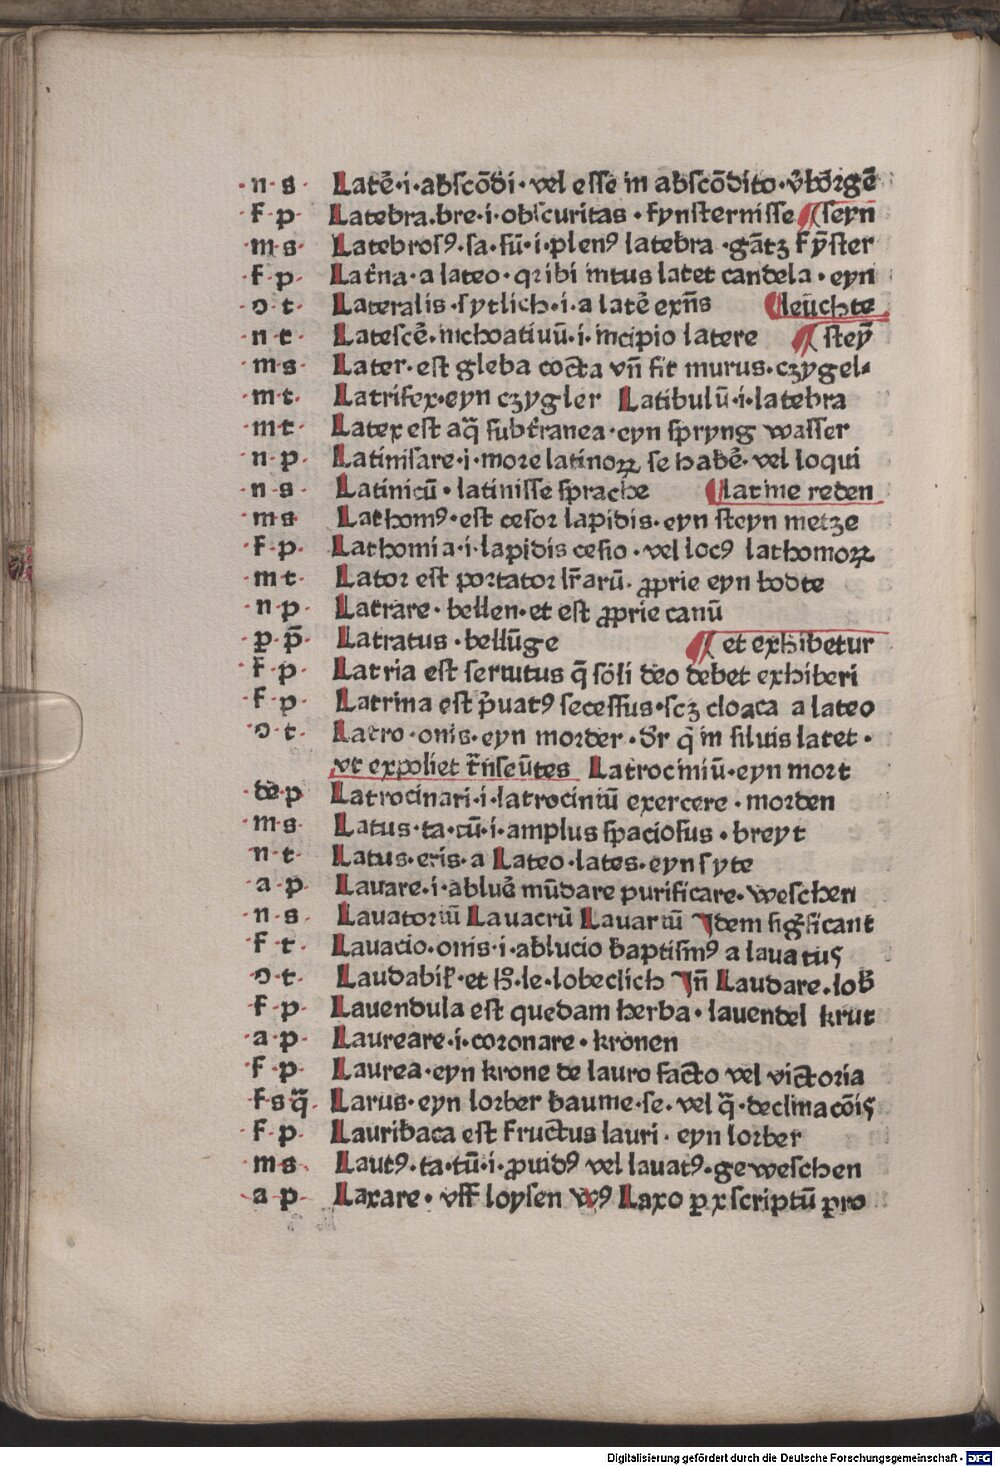 ·n·s· Latē·i·abscōdi·vel esse in abscōdito·v̄bōrgē
·f·p· Latebra.bre·i·obscuritas·fynsternisse ¶seyn
·m·s· Latebrosꝰ·sa·sū·i·plenꝰ latebra·gātz fȳster
·f·p· Lat̄na·a lateo·qꝛ ibi intus latet candela·eyn
·o·t· Lateralis·sytlich·i·a latē exn̄s ¶leūchte
·n·t· Latescē.inchoatiuū·i·incipio latere ¶steȳ
·m·s· Later·est gleba cocta vn̄ fit murus·czygel⸗
·m·t· Latrifex·eyn czygler Latibulū·i·latebra
·m·t· Latex est aq̄ subt̄ranea·eyn spryng wasser
·n·p· Latinisare·i·more latinoꝝ se habē·vel loqui
·n·s· Latinicū·latinisse sprache ¶latine reden
·m·s· Lathomꝰ·est cesor lapidis·eyn steyn metze
·f·p· Lathomia·i·lapidis cesio·vel locꝰ lathomoꝝ
·m·t· Lator est portator lr̄arū·ꝓprie eyn bodte
·n·p· Latrare·bellen·et est ꝓprie canū
·p·p̄· Latratus·bellūge ¶et exhibetur
·f·p· Latria est seruitus q̄ soli deo debet exhiberi
·f·p· Latrina est p̄uatꝰ secessus·scz cloaca a lateo
·o·t· Latro·onis·eyn morder·dr̄ q̄ in siluis latet·
vt expoliet tr̄nseūtes Latrociniū·eyn mort
·de·p Latrocinari·i·latrociniū exercere·morden
·m·s· Latus·ta·cū·i·amplus spaciosus·breyt
·n·t· Latus·eris·a Lateo·lates·eyn syte
·a·p· Lauare·i·abluē mūdare purificare·weschen
·n·s· Lauatoriū Lauacrū Lauariū Idem significant
·f·t· Lauacio·onis·i·ablucio baptismꝰ a lauatus
·o·t· Laudabil̄·et h̄·le·lobeclich Jn̄ Laudare.lob̄
·f·p· Lauendula est quedam herba·lauendel krut
·a·p· Laureare·i·coronare·kronen
·f·p· Laurea·eyn krone de lauro facto vel victoria
·f·s q̄· Larus·eyn lorber baume·se·vel q̄·declinacōis
·f·p· Lauribaca est fructus lauri·eyn lorber
·m·s· Lautꝰ·ta·tū·i·ꝓuidꝰ vel lauatꝰ·geweschen
·a·p· Laxare·vff loysen wꝰ Laxo ꝑ x scriptū pro
Digitalisierung gefördert durch die Deutsche Forschungsgemeinschaft - DFG